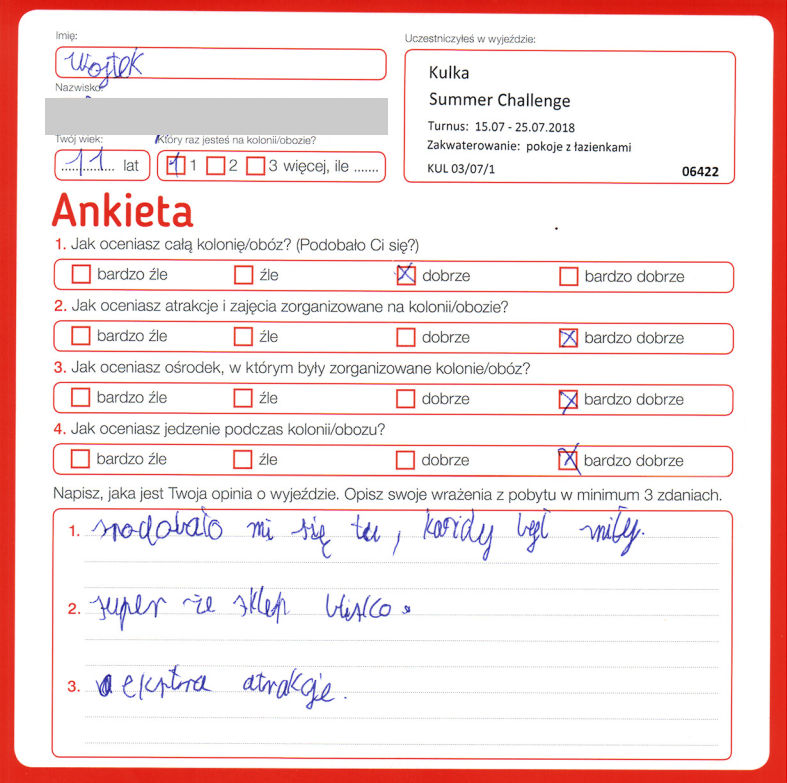 Imię:
Wojtek
Uczestniczyłeś w wyjeździe:
Kulka
Summer Challenge
Turnus: 15.07 - 25.07.2018
Zakwaterowanie: pokoje z łazienkami
KUL 03/07/1 06422
Nazwisko:
Twój wiek: Który raz jesteś na kolonii/obozie?
11 lat 1 2 3 więcej, ile .......
Ankieta
1. Jak oceniasz całą kolonię/obóz? (Podobało Ci się?)
bardzo źle źle dobrze bardzo dobrze
2. Jak oceniasz atrakcje i zajęcia zorganizowane na kolonii/obozie?
bardzo źle źle dobrze bardzo dobrze
3. Jak oceniasz ośrodek, w którym były zorganizowane kolonie/obóz?
bardzo źle źle dobrze bardzo dobrze
4. Jak oceniasz jedzenie podczas kolonii/obozu?
bardzo źle źle dobrze bardzo dobrze
Napisz, jaka jest Twoja opinia o wyjeździe. Opisz swoje wrażenia z pobytu w minimum 3 zdaniach.
1. spodobało mi się tu, każdy był miły.
2. super że sklep blisko.
3. ekstra atrakcje.